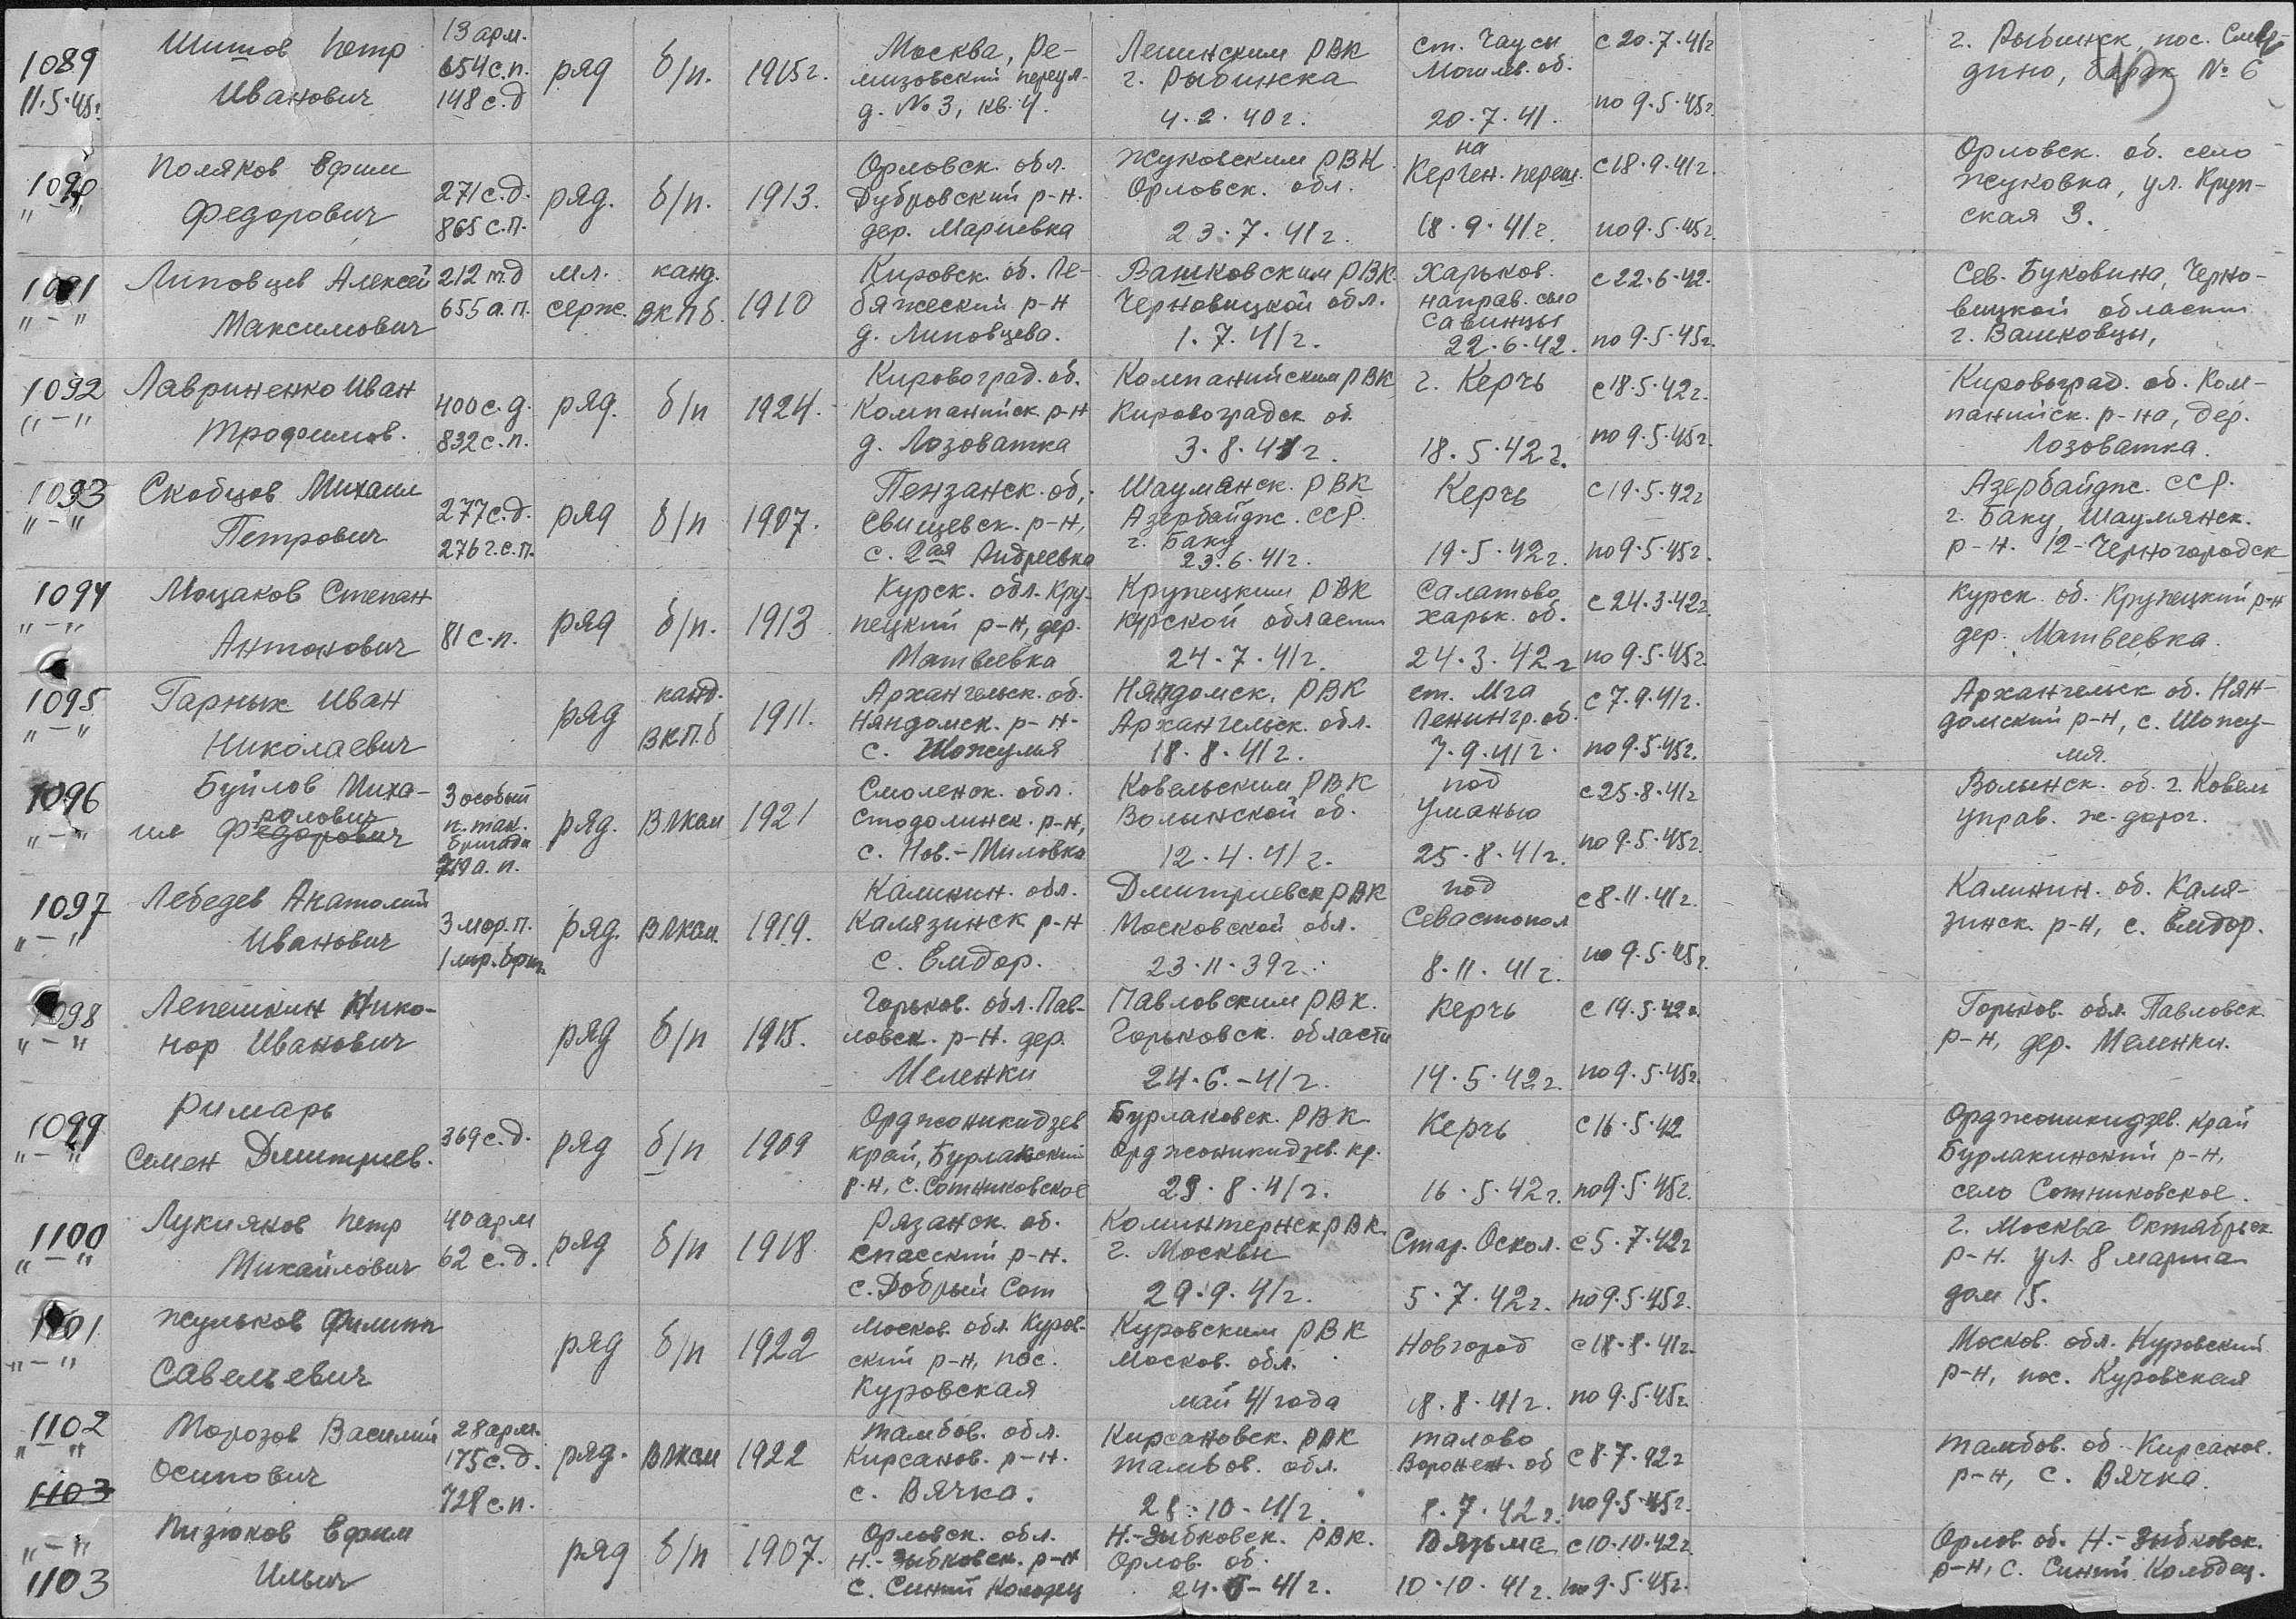 1089
11.5.45г.
Шитов Петр
Иванович
13 арм.
654 с.п.
148 с.д
ряд
б/п.
1915г.
Москва, Ре-
мизовский переул.
д. № 3, кв. 4.
Ленинским РВК
г. Рыбинска
4.2.40г.
ст. Чаусы
Могилев. об.
20.7.41.
с 20.7.41г
по 9.5.45г.
г. Рыбинск, пос.
дино, барак № 6
1090
"-"
Поляков Ефим
Федорович
271 с.д.
865 с.п.
ряд.
б/п.
1913.
Орловск. обл.
Дубровский р-н.
дер. Мариевка
Жуковским РВК
Орловск. обл.
23.7.41г.
на
Керчен. переш.
18.9.41г.
с 18.9.41г.
по 9.5.45г.
Орловск. об. село
Жуковка, ул. Круп-
ская 3.
1091
"-"
Липовцев Алексей
Максимович
212 т.д
655 а.п.
мл.
серж.
канд.
ВКПб.
1910
Кировск. об. Ле-
бяжеский р-н
д. Липовцева.
Вашковским РВК.
Черновицкой обл.
1.7.41г.
Харьков.
направ. село
Савинцы
22.6.42.
с 22.6.42.
по 9.5.45г.
Сев. Буковина, Черно-
вицкой области
г. Вашковцы,
1092
"-"
Лавриненко Иван
Трофимов.
400 с.д.
832 с.п.
ряд.
б/п
1924.
Кировоград. об.
Компанийск. р-н
д. Лозоватка
Компанийским РВК
Кировоградск об.
3.8.41г.
г. Керчь
18.5.42г.
с 18.5.42г.
по 9.5.45г.
Кировоград. об. Ком-
панийск. р-на, дер.
Лозоватка.
1093
"-"
Скобцов Михаил
Петрович
277 с.д.
276 г.с.п.
ряд
б/п
1907.
Пензанск. об,
Свищевск. р-н,
с. 2ая Андреевка
Шауманск. РВК
Азербайдж. ССР.
г. Баку
23.6.41г.
Керчь
19.5.42г.
с 19.5.42г
по 9.5.45г.
Азербайдж. ССР.
г. Баку, Шаумянск.
р-н. 12-Черногородск
1094
"-"
Моцаков Степан
Антонович
81 с.п.
ряд
б/п.
1913
Курск. обл. Кру-
пецкий р-н, дер.
Матвеевка
Крупецким РВК
Курской области
24.7.41г.
Салатово
Харьк. об.
24.3.42г
с 24.3.42г.
по 9.5.45г.
Курск об. Крупецкий р-н
дер. Матвеевка.
1095
"-"
Гарных Иван
Николаевич
ряд
канд.
ВКПб
1911.
Архангельск. об.
Няндомск. р-н.
с. Шожумя
Няндомск. РВК
Архангельск. обл.
18.8.41г.
ст. Мга
Ленингр. об.
7.9.41г.
с 7.9.41г.
по 9.5.45г.
Архангельск об. Нян-
домский р-н, с. Шожу-
мя.
1096
"-"
Буйлов Миха-
ролович
ил Федорович
3 особый
п. так.
бригада
719 а.п.
ряд.
Влксм
1921
Смоленск. обл.
Стодолинск. р-н,
с. Нов.-Миловка
Ковельским РВК
Волынской об.
12.4.41г.
под
Уманью
25.8.41г.
с 25.8.41г
по 9.5.45г.
Волынск. об. г. Ковель
управ. ж-дорог.
1097
"-"
Лебедев Анатолий
Иванович
3 мор.п.
1 мор. бриг.
ряд.
Влксм.
1919.
Калинин. обл.
Калязинск р-н
с. Емдор.
Дмитриевск РВК
Московской обл.
23.11.39г.
под
Севастопол
8.11.41г.
с 8.11.41г.
по 9.5.45г.
Калинин. об. Каля-
зинск. р-н, с. Емдор.
1098
"-"
Лепешкин Нико-
нор Иванович
ряд
б/п
1915.
Горьков. обл. Пав-
ловск. р-н. дер.
Меленки
Павловским РВК.
Горьковск. области
24.6.-41г.
Керчь
14.5.42г.
с 14.5.42г.
по 9.5.45г.
Горьков. обл. Павловск.
р-н, дер. Меленки.
1099
"-"
Римарь
Семен Дмитриев.
369 с.д.
ряд
б/п
1909
Орджоникидзев
край, Бурлакский
р-н, с. Сотниковское
Бурлаковск. РВК
Орджоникидзев. кр.
29.8.41г.
Керчь
16.5.42г.
с 16.5.42
по 9.5.45г.
Орджоникидзев. край
Бурлакинский р-н,
село Сотниковское.
1100
"-"
Лукияков Петр
Михайлович
40 арм
62 с.д.
ряд
б/п
1918
Рязанск. об.
Спасский р-н.
с. Добрый Сот
Коминтернск РВК.
г. Москвы
29.9.41г.
Стар. Оскол.
5.7.42г.
с 5.7.42г
по 9.5.45г.
г. Москва Октябрьск
р-н. ул. 8 марта
дом 15.
1101
"-"
Жульков Филипп
Савельевич
ряд
б/п
1922
Москов. обл. Куров-
ский р-н, пос.
Куровская
Куровским РВК
Москов. обл.
май 41 года
Новгород
18.8.41г.
с 18.8.41г.
по 9.5.45г.
Москов. обл. Куровский
р-н, пос. Куровская
1102
"-"
1103
Морозов Василий
Осипович
28 арм.
175 с.д.
728 с.п.
ряд.
Влксм
1922
Тамбов. обл.
Кирсанов. р-н.
с. Вячка.
Кирсановск. РВК
Тамбов. обл.
28.10-41г.
Талово
Воронеж. об
8.7.42г.
с 8.7.42г
по 9.5.45г.
Тамбов. об. Кирсанов.
р-н, с. Вячка.
"-"
1103
Пизюков Ефим
Ильич
ряд
б/п
1907.
Орловск. обл.
Н.-Зыбковск. р-н
с. Синий Колодец
Н.-Зыбковск. РВК.
Орлов. об.
24.6-41г.
Вязьма
10.10.41г.
с 10.10.42г
по 9.5.45г.
Орлов. об. Н.-Зыбковск.
р-н, с. Синий Колодец.